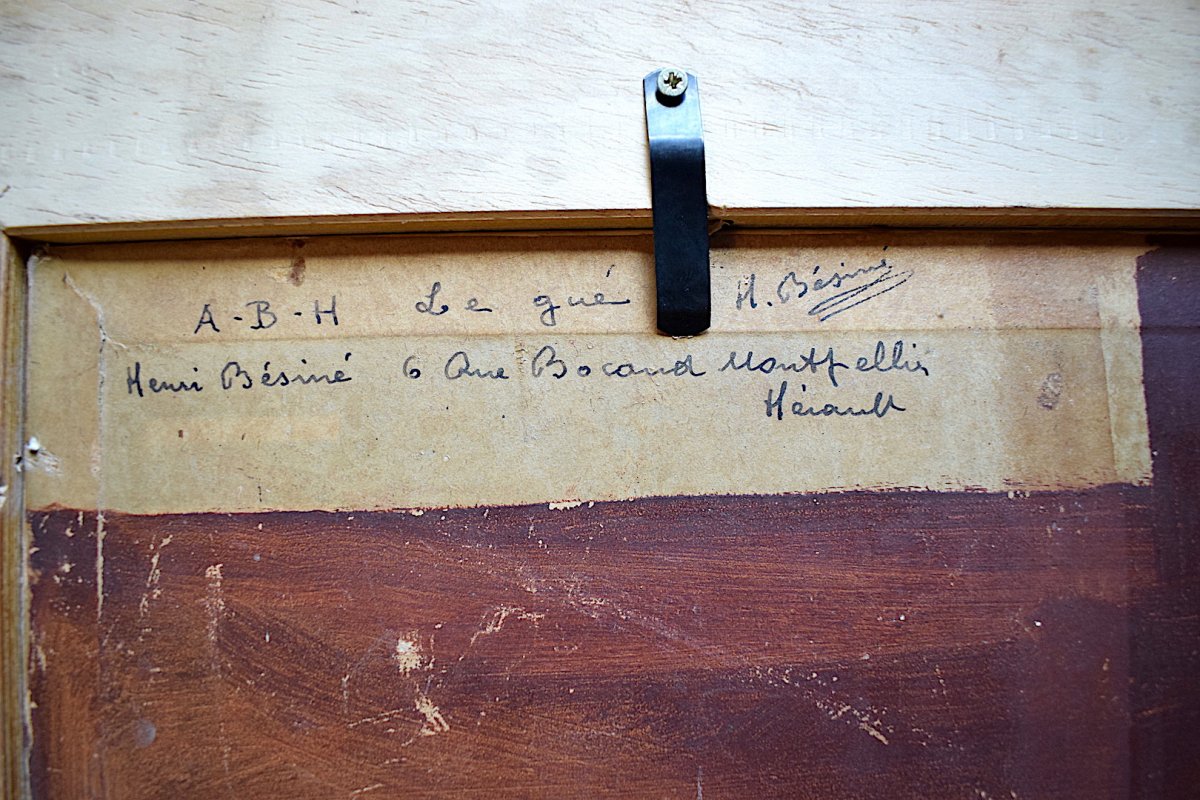 A-B-H Le gué H. Bésiné
Henri Bésiné 6 Rue Bocaud Montpellier
Hérault